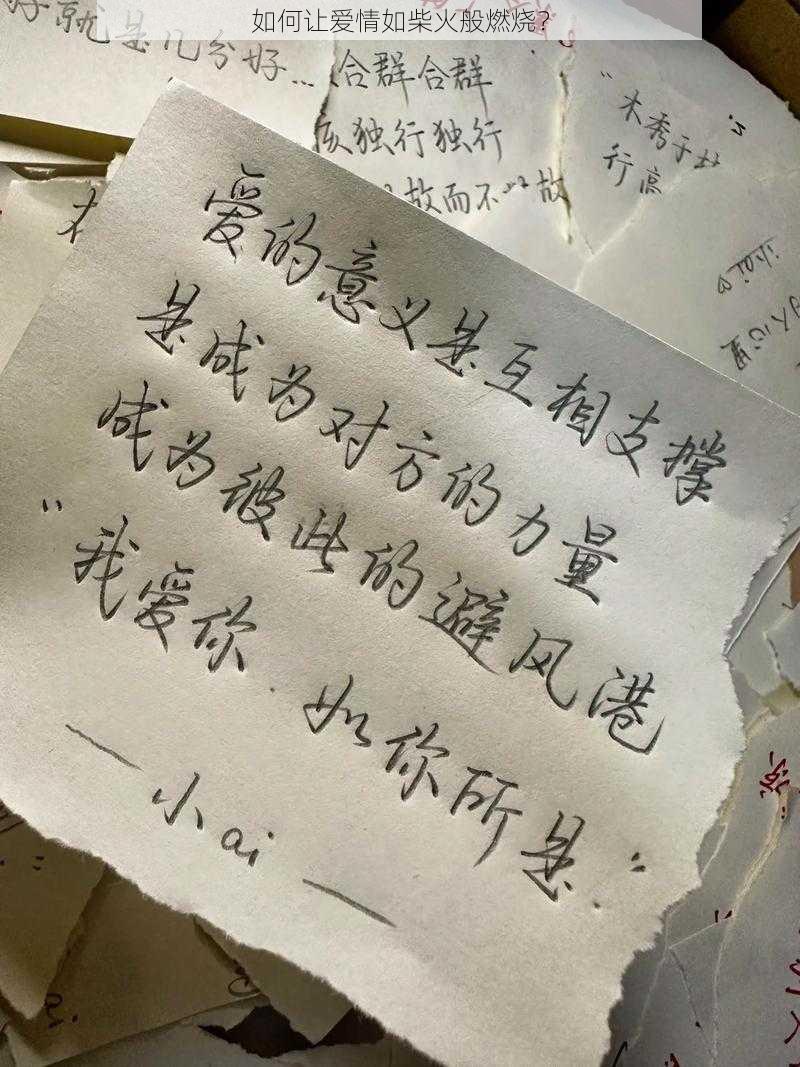 如何让爱情如柴火般燃烧？
好就是几分好…
合群合群
独行独行
故而不以故
"木秀于林
行高
小ai
人心里
爱的意义是互相支撑
是成为对方的力量
成为彼此的避风港
"我爱你.如你所是."
—小ai—